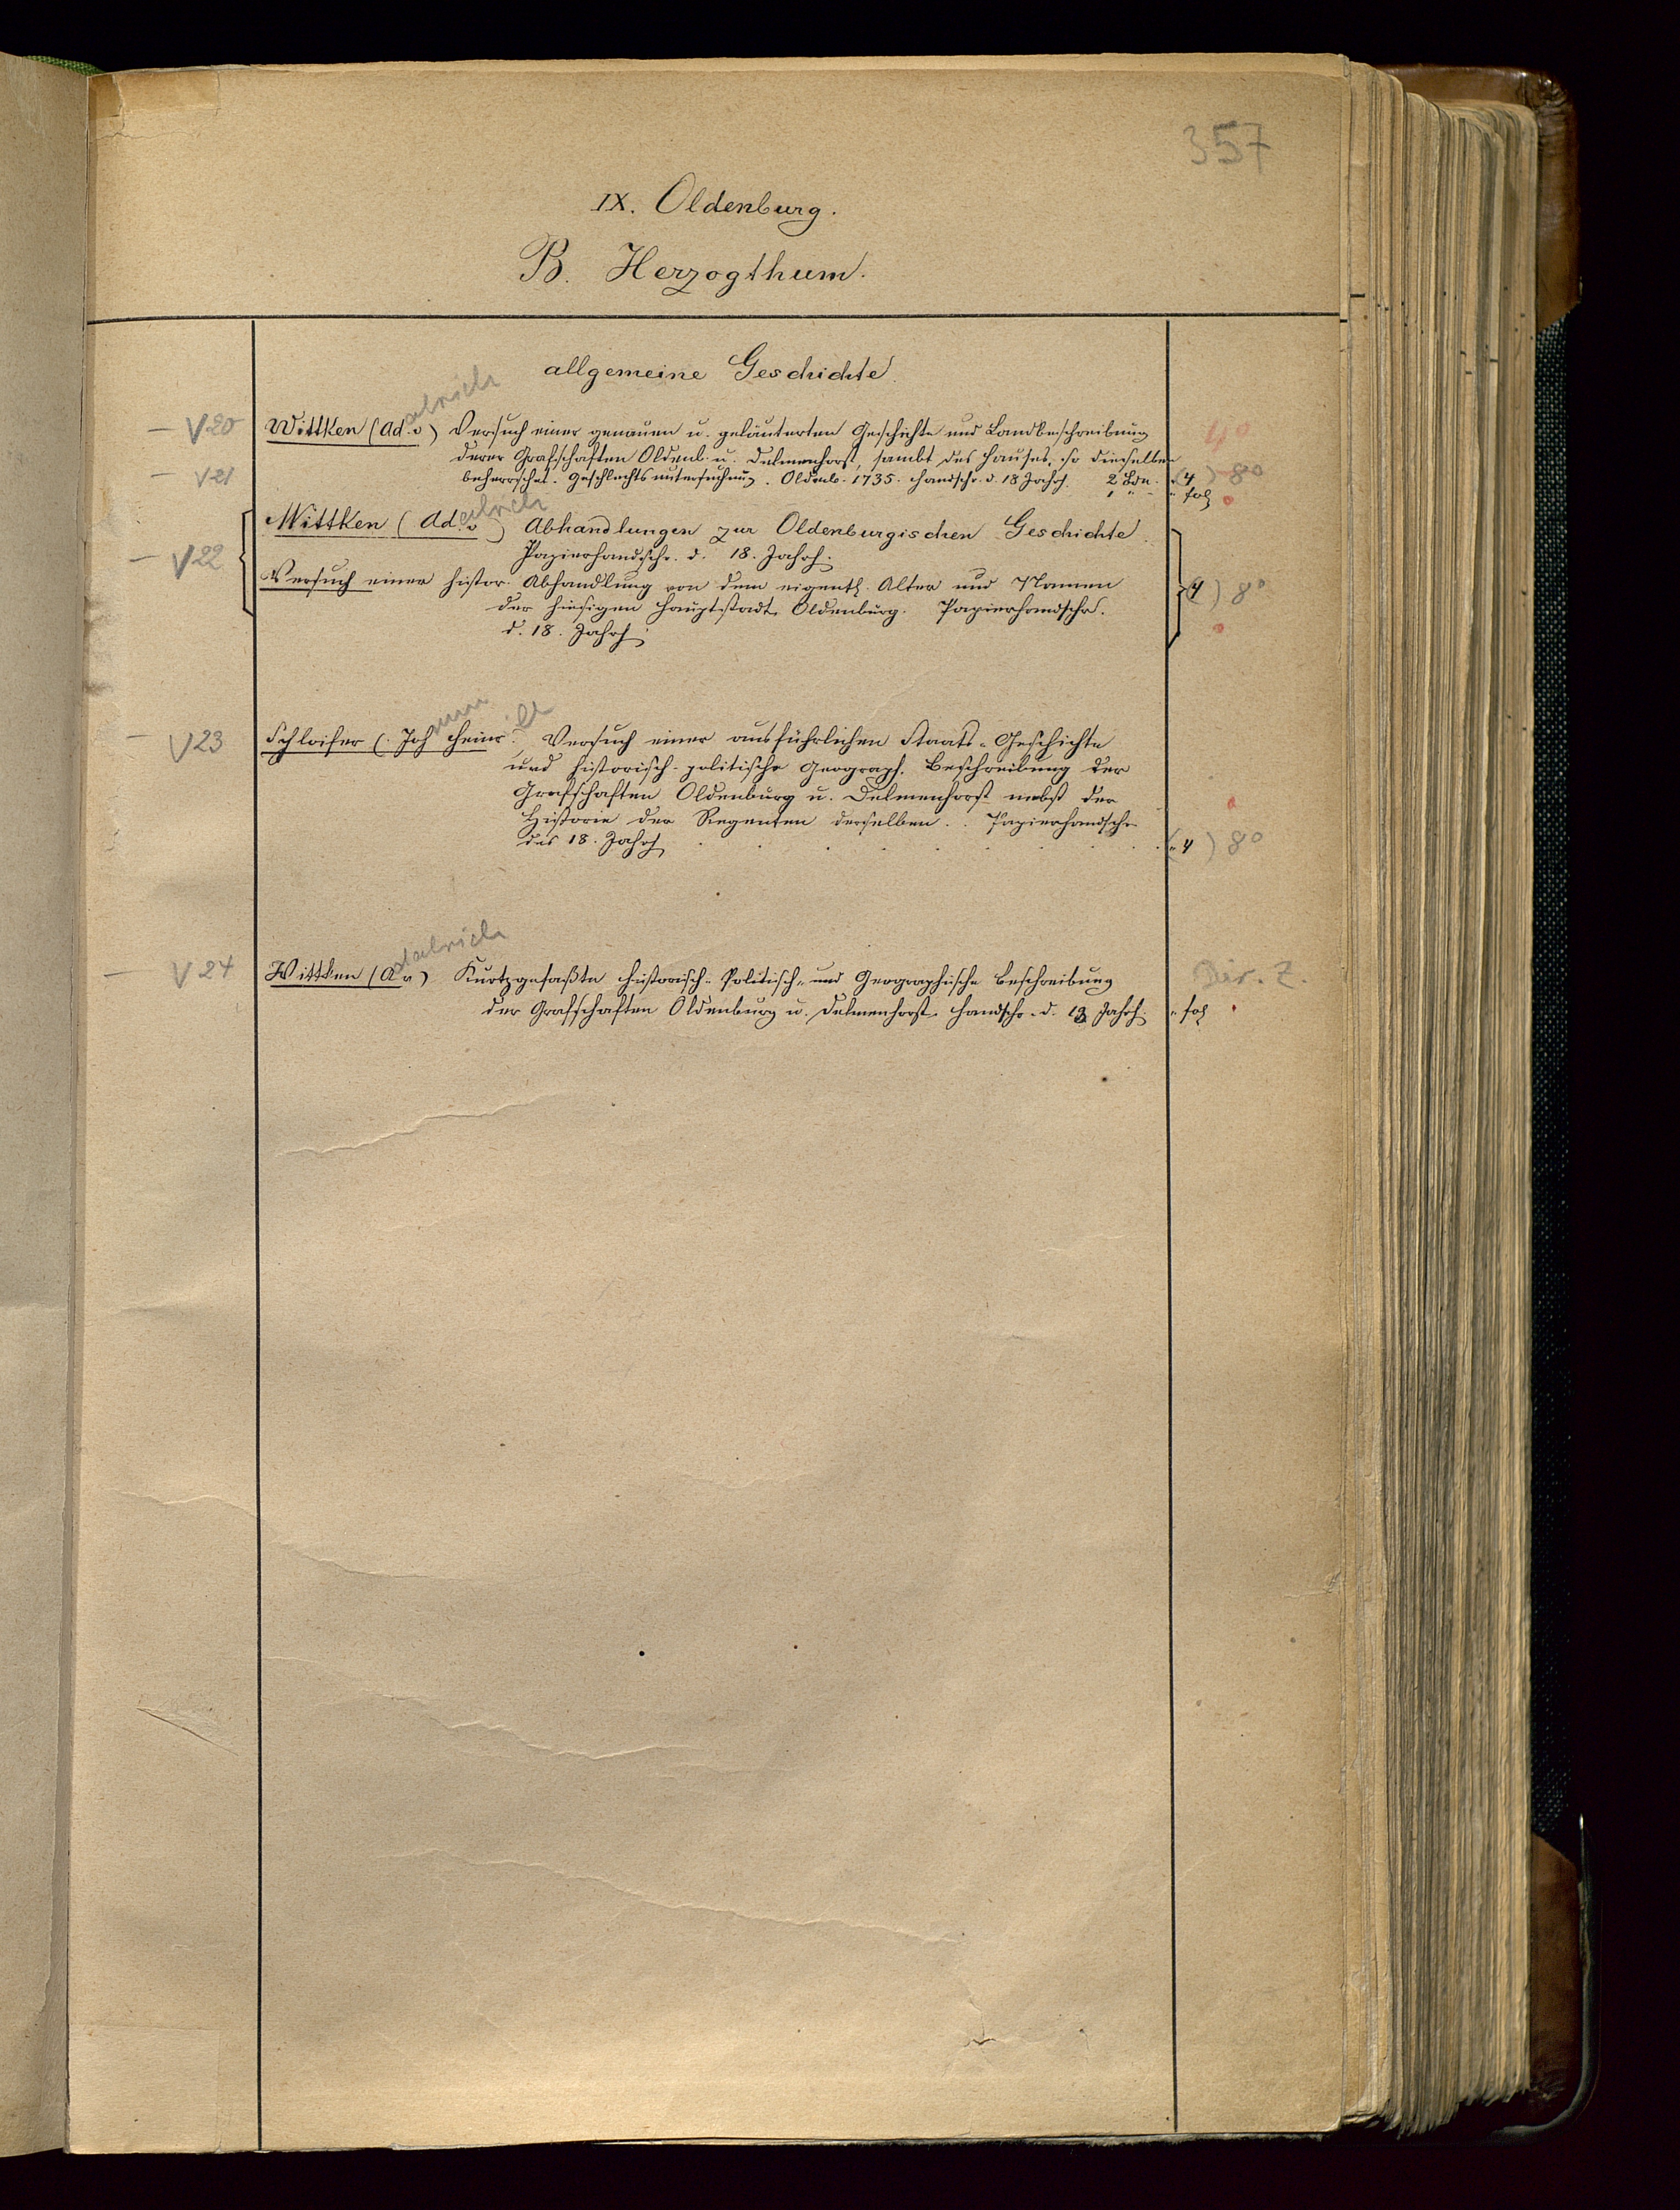 357
IX. Oldenburg.
B. Herzogthum.
allgemeine Geschichte.
alrich
V20 Wittken (Ad. v) Versuch einer genauen u. geläuterten Geschichte und Landbeschreibung 4°
derer Grafschaften Oldenb. u. Delmenhorst, sambt des Hauses, so dieselben
V21 beherrschet. Geschlechtsuntersuchung. Oldenb. 1735. Handschr. d. 18 Jahrh. 2 Bde. (4) 8°
1 " " fol
alrich
Wittken (Ad. v) Abhandlungen zur Oldenburgischen Geschichte.
V22 Papierhandschr. d. 18. Jahrh.
Versuch einer histor. Abhandlung von dem eigentl. Alter und Namen (4) 8°
der hiesigen Hauptstadt Oldenburg. Papierhandschr.
d. 18. Jahrh.
ann ich
V23 Schloifer (Joh Heinr. Versuch einer ausführlichen Staats-Geschichte
und historisch-politische Geograph. Beschreibung der
Grafschaften Oldenburg u. Delmenhorst nebst der
Historie der Regenten derselben. Papierhandschr.
des 18. Jahrh. (4) 8°
dalrich
V24 Wittken (A v) Kurtzgefaßte Historisch-Politisch- und Geographische Beschreibung Dir. Z.
der Grafschaften Oldenburg u. Delmenhorst. Handschr. d. 18 Jahrh. " fol